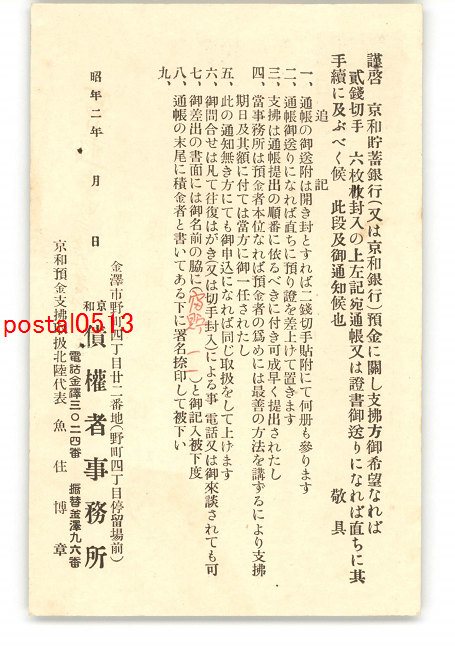 謹啓 京和貯蓄銀行(又は京和銀行)預金に關し支拂方御希望なれば
貳錢切手 六枚封入の上左記宛通帳又は證書御送りになれば直ちに其
手續に及ぶべく候 此段及御通知候也 敬具
追記
一、通帳の御送附は開き封とすれば二錢切手貼附にて何册も參ります
二、通帳御送りになれば直ちに預り證を差上げて置きます
三、支拂は通帳提出の順番に依るべきに付き可成早く提出されたし
四、當事務所は預金者本位なれば預金者の爲めには最善の方法を講ずるにより支拂
期日及其額に付ては當方に御一任されたし
五、此の通知無き方にても御申込になれば同じ取扱をして上げます
六、御問合せは凡て往復はがき(又は切手封入)による事 電話又は御來談されても可
七、御差出の書面には御名前の脇に(
一一)と御記入被下度
八、通帳の末尾に積金者と書いてある下に署名捺印して被下い
九、
昭年二年 月 日
金澤市野町四丁目廿二番地(野町四丁目停留場前)
京和 債權者事務所
電話金澤三〇二四番 振替金澤九六番
京和預金支拂取扱北陸代表 魚住博章
postal0513